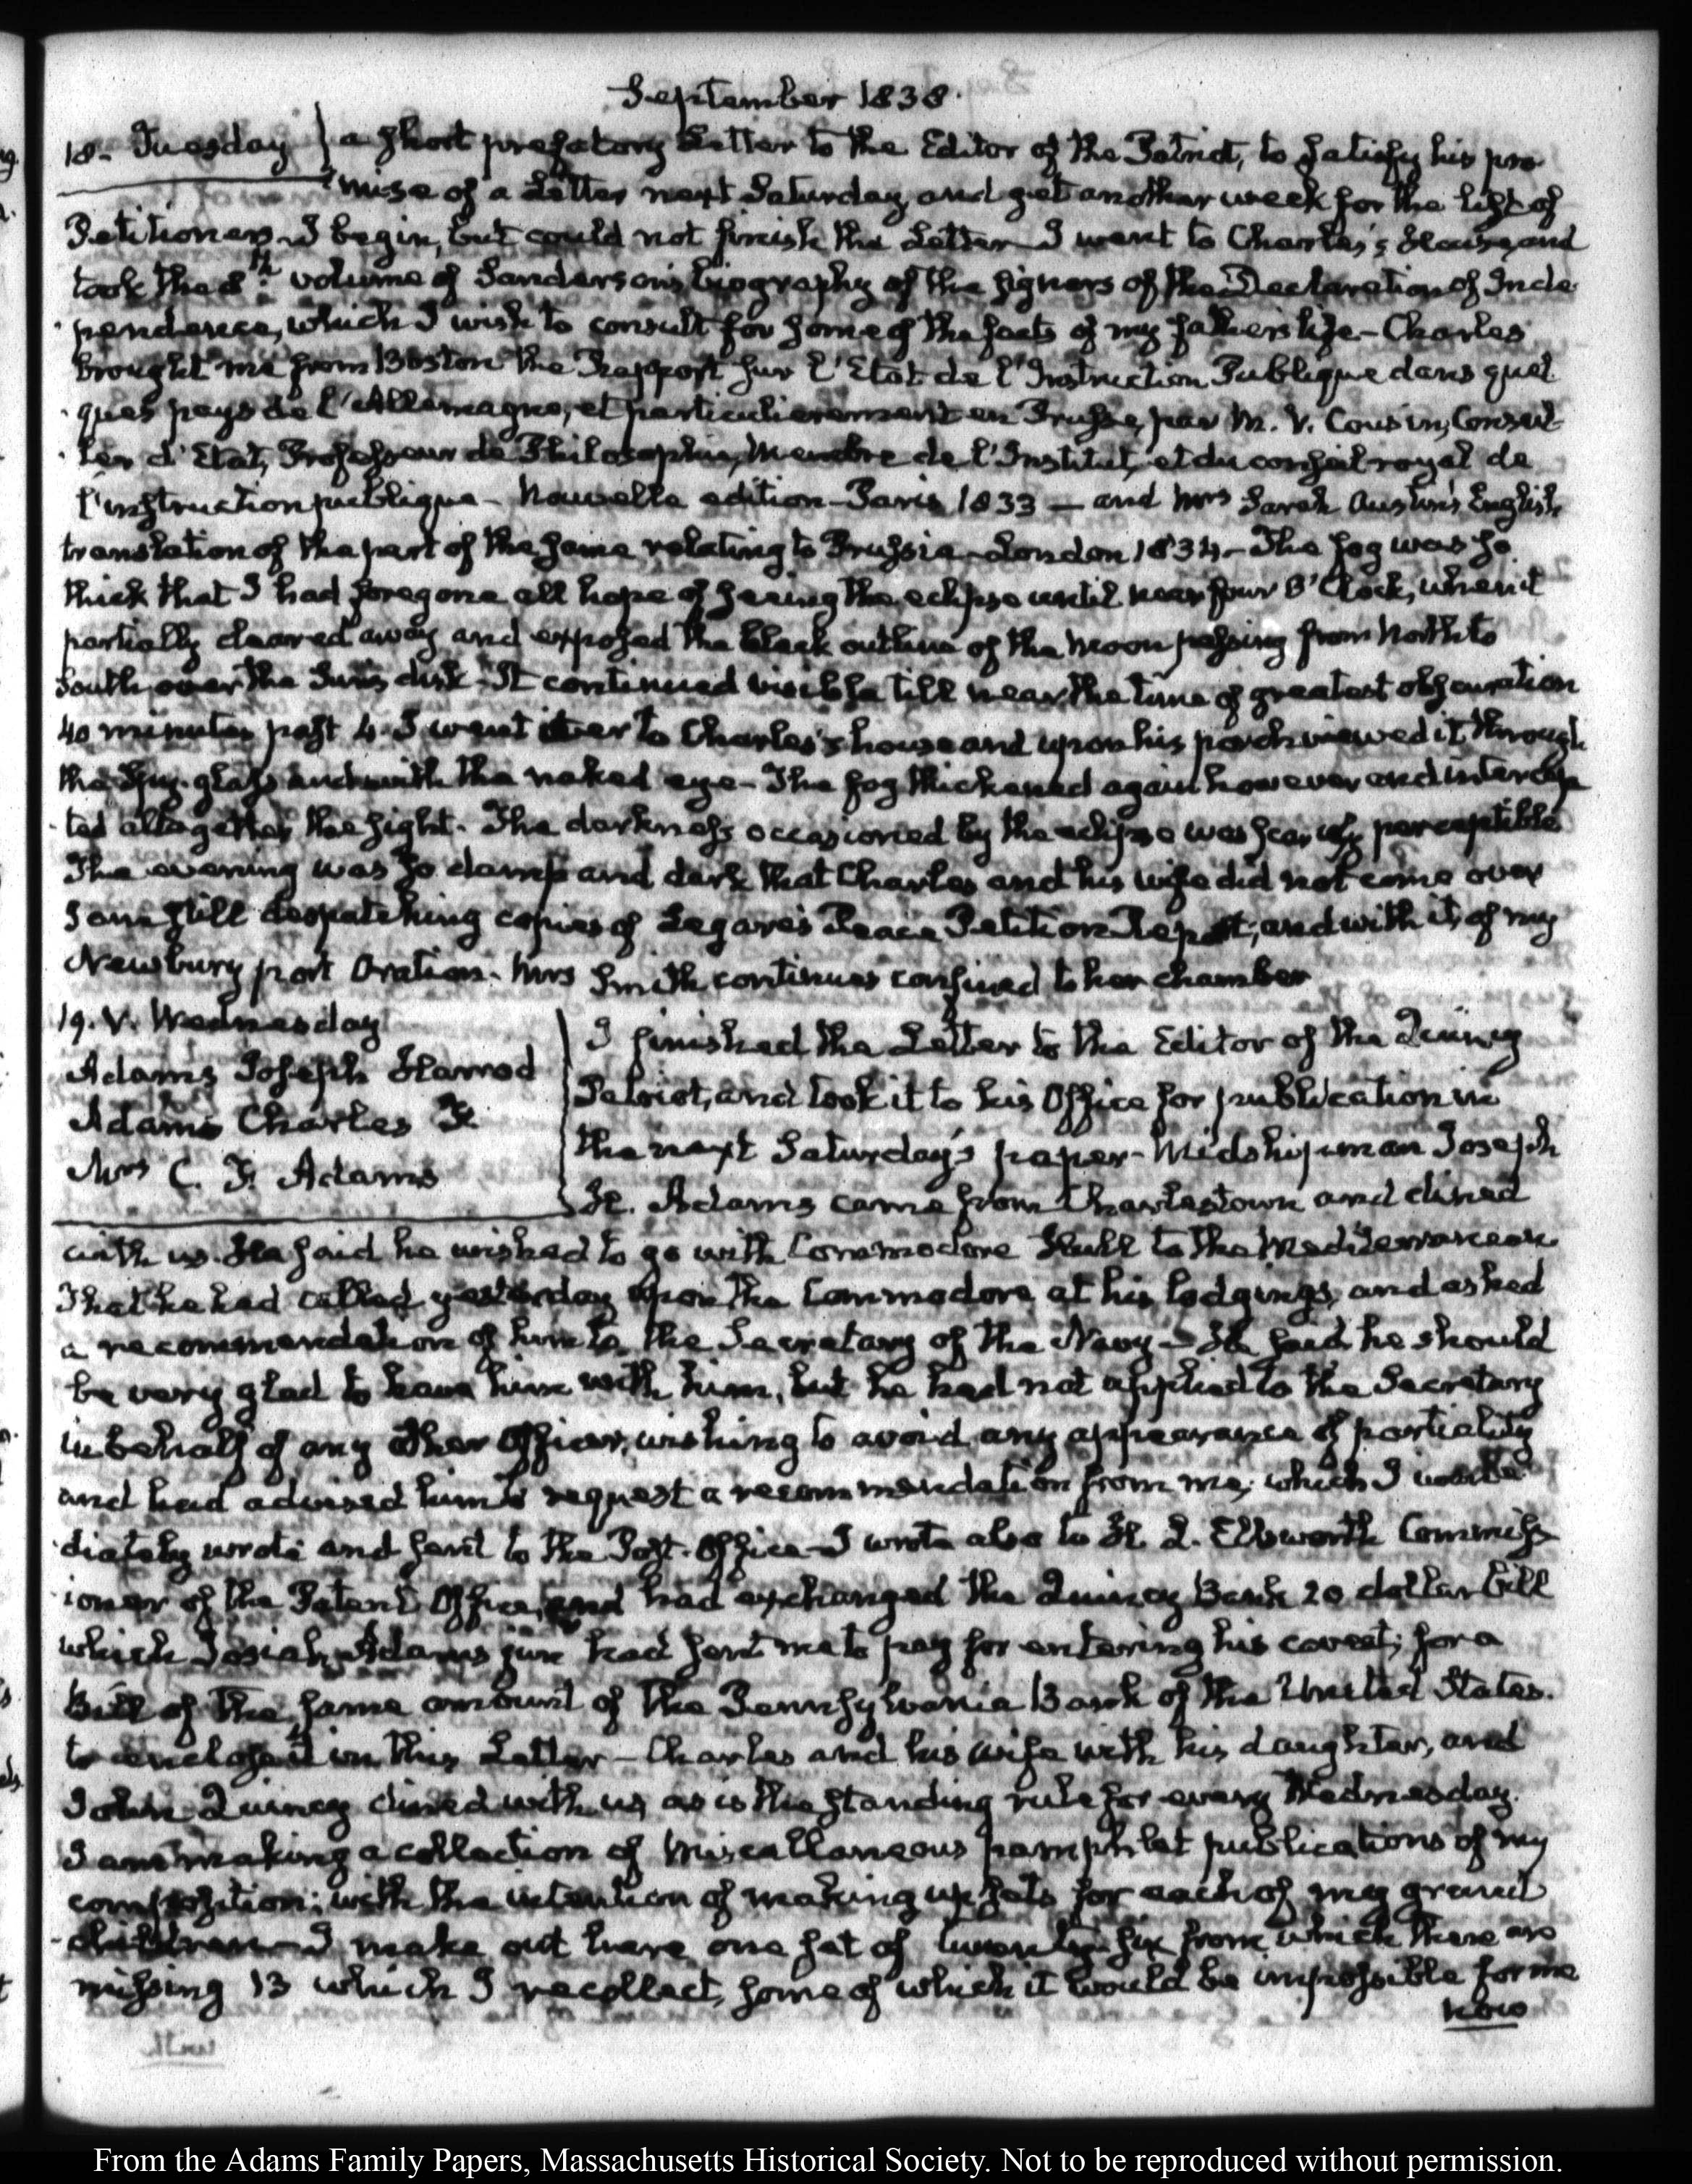 September 1838.
18. Tuesday } a short prefatory Letter to the Editor of the Patriot, to satisfy his pro
mise of a Letter next Saturday, and get another week for the list of
Petitioners. I begin, but could not finish the Letter I went to Charles's House, and
took the volume of Sanderson's biography of the signers of the Declaration of Inde
pendence, which I wish to consult for some of the facts of my father's life - Charles
brought me from Boston the Rapport sur l'Etat de l'Instruction Publique dans quel
ques pays de l'Allemagne, et particulierement en Prusse, par M. V. Cousin, Conseil-
ler d'Etat, Professeur de Philosophie, Membre de l'Institut, et du conseil royal de
l'instruction publique - Nouvelle edition - Paris 1833 - and Mrs Sarah Austin's English
translation of the part of the same relating to Prussia - London 1834 - The fog was so
thick that I had foregone all hope of seeing the eclipse until near four O'Clock, when it
partially cleared away and exposed the black outline of the moon passing from North to
South, over the Sun's disk - It continued visible till near the time of greatest obscuration
40 minutes past 4. I went over to Charles's house and upon his porch viewed it through
the spy-glass and with the naked eye - The fog thickened again however and intercep
ted altogether the sight. The darkness occasioned by the eclipse was scarcely perceptible
The evening was so damp and dark that Charles and his wife did not come over
I am still despatching copies of Legare's Peace Petition Report, and with it, of my
Newburyport Oration. Mrs Smith continues confined to her chamber
19. V. Wednesday
Adams Joseph Harrod
Adams Charles F.
Mrs C. F. Adams
I finished the Letter to the Editor of the Quincy
Patriot, and took it to his Office for publication in
the next Saturday's paper - Midshipman Joseph
H. Adams came from Charlestown and dined
with us. He said he wished to go with Commodore Hull to the Mediterranean
That he had called yesterday upon the Commodore at his lodgings, and asked
a recommendation of him to the Secretary of the Navy - He said he should
be very glad to have him with him, but he had not applied to the Secretary
in behalf of any other Officer, wishing to avoid any appearance of partiality
and had advised him to request a recommendation from me, which I imme
diately wrote and sent to the Post-Office - I wrote also to H. L. Ellsworth Commiss
ioner of the Patent Office, and had exchanged the Quincy Bank 20 dollar bill
which Josiah Adams junr had sent me to pay for entering his caveat; for a
Bill of the same amount of the Pennsylvania Bank of the United States.
to enclose it in this Letter - Charles and his wife with his daughter, and
John Quincy dined with us, as is the standing rule for every Wednesday.
I am making a collection of Miscellaneous pamphlet publications of my
composition; with the intention of making up sets for each of my grand
children - I make out here one set of twenty-six from which there are
missing 13 which I recollect, some of which it would be impossible for me
now
From the Adams Family Papers, Massachusetts Historical Society. Not to be reproduced without permission.